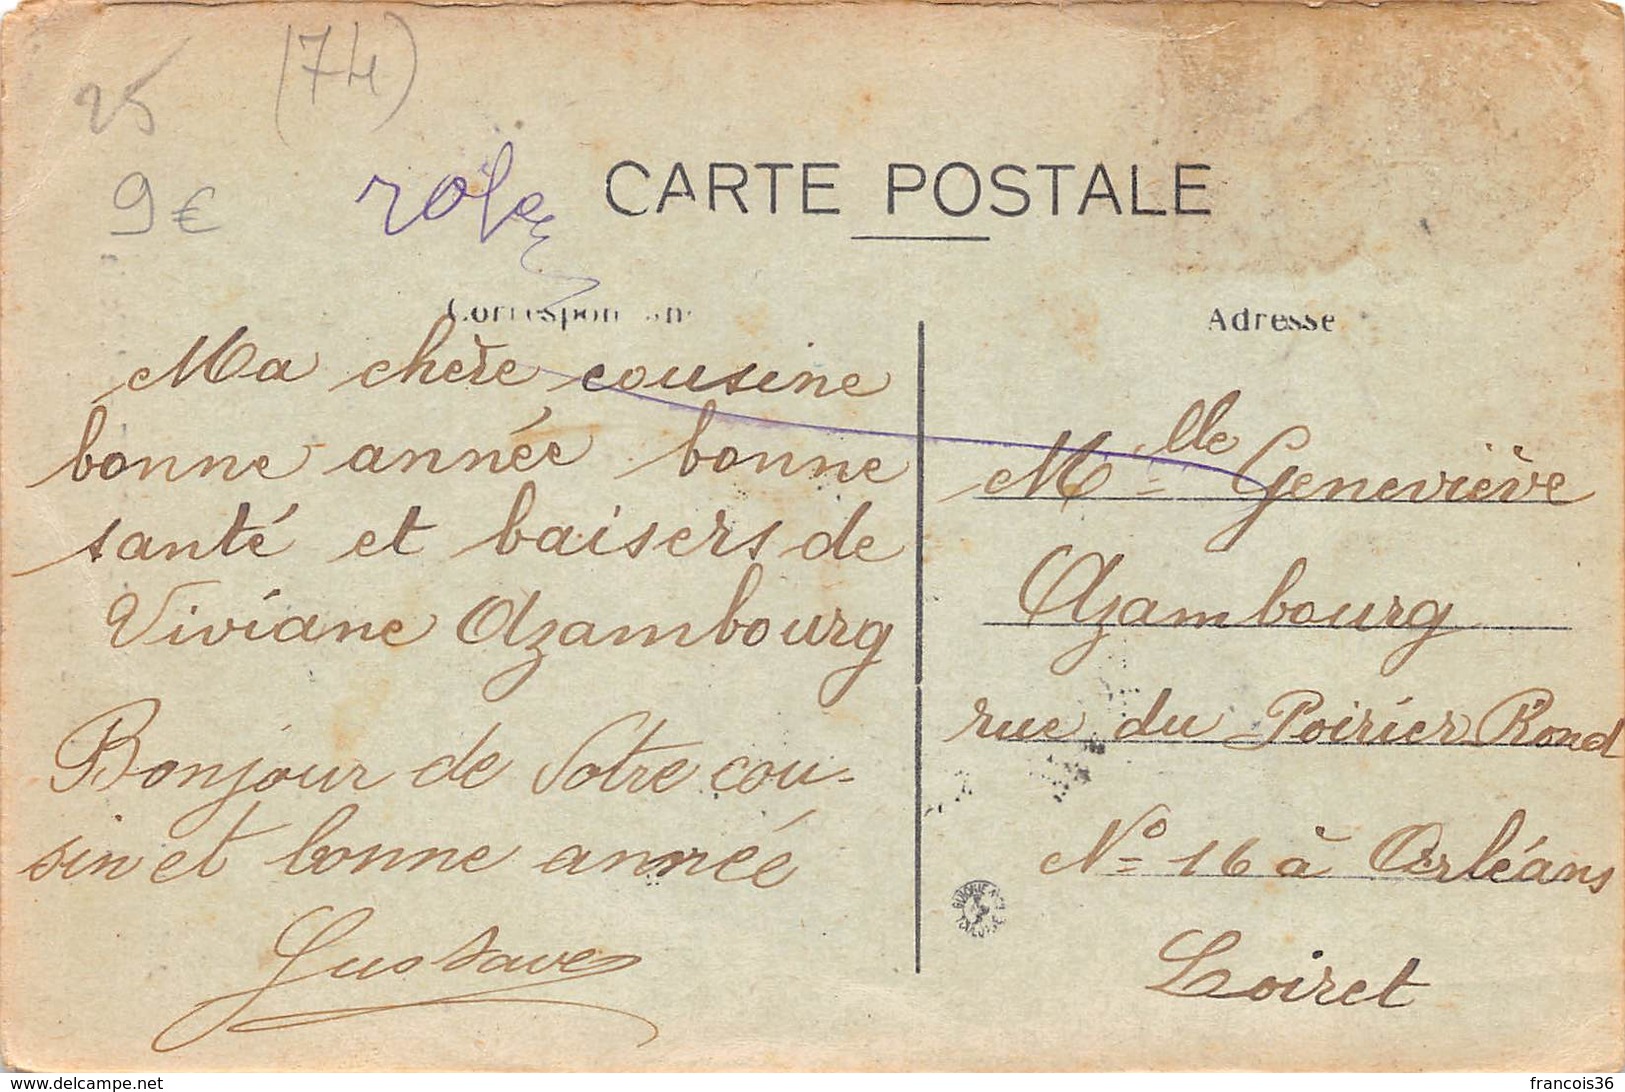 25
(74)
9 €
CARTE POSTALE
Ma chère cousine
bonne année bonne
santé et baisers de
Viviane Azambourg
Bonjour de Votre cou-
sin et bonne année
Gustave
Adresse
Mlle Geneviève
Azambourg
rue du Poirier Rond
No 16 à Orléans
Loiret
www.delcampe.net
francois36